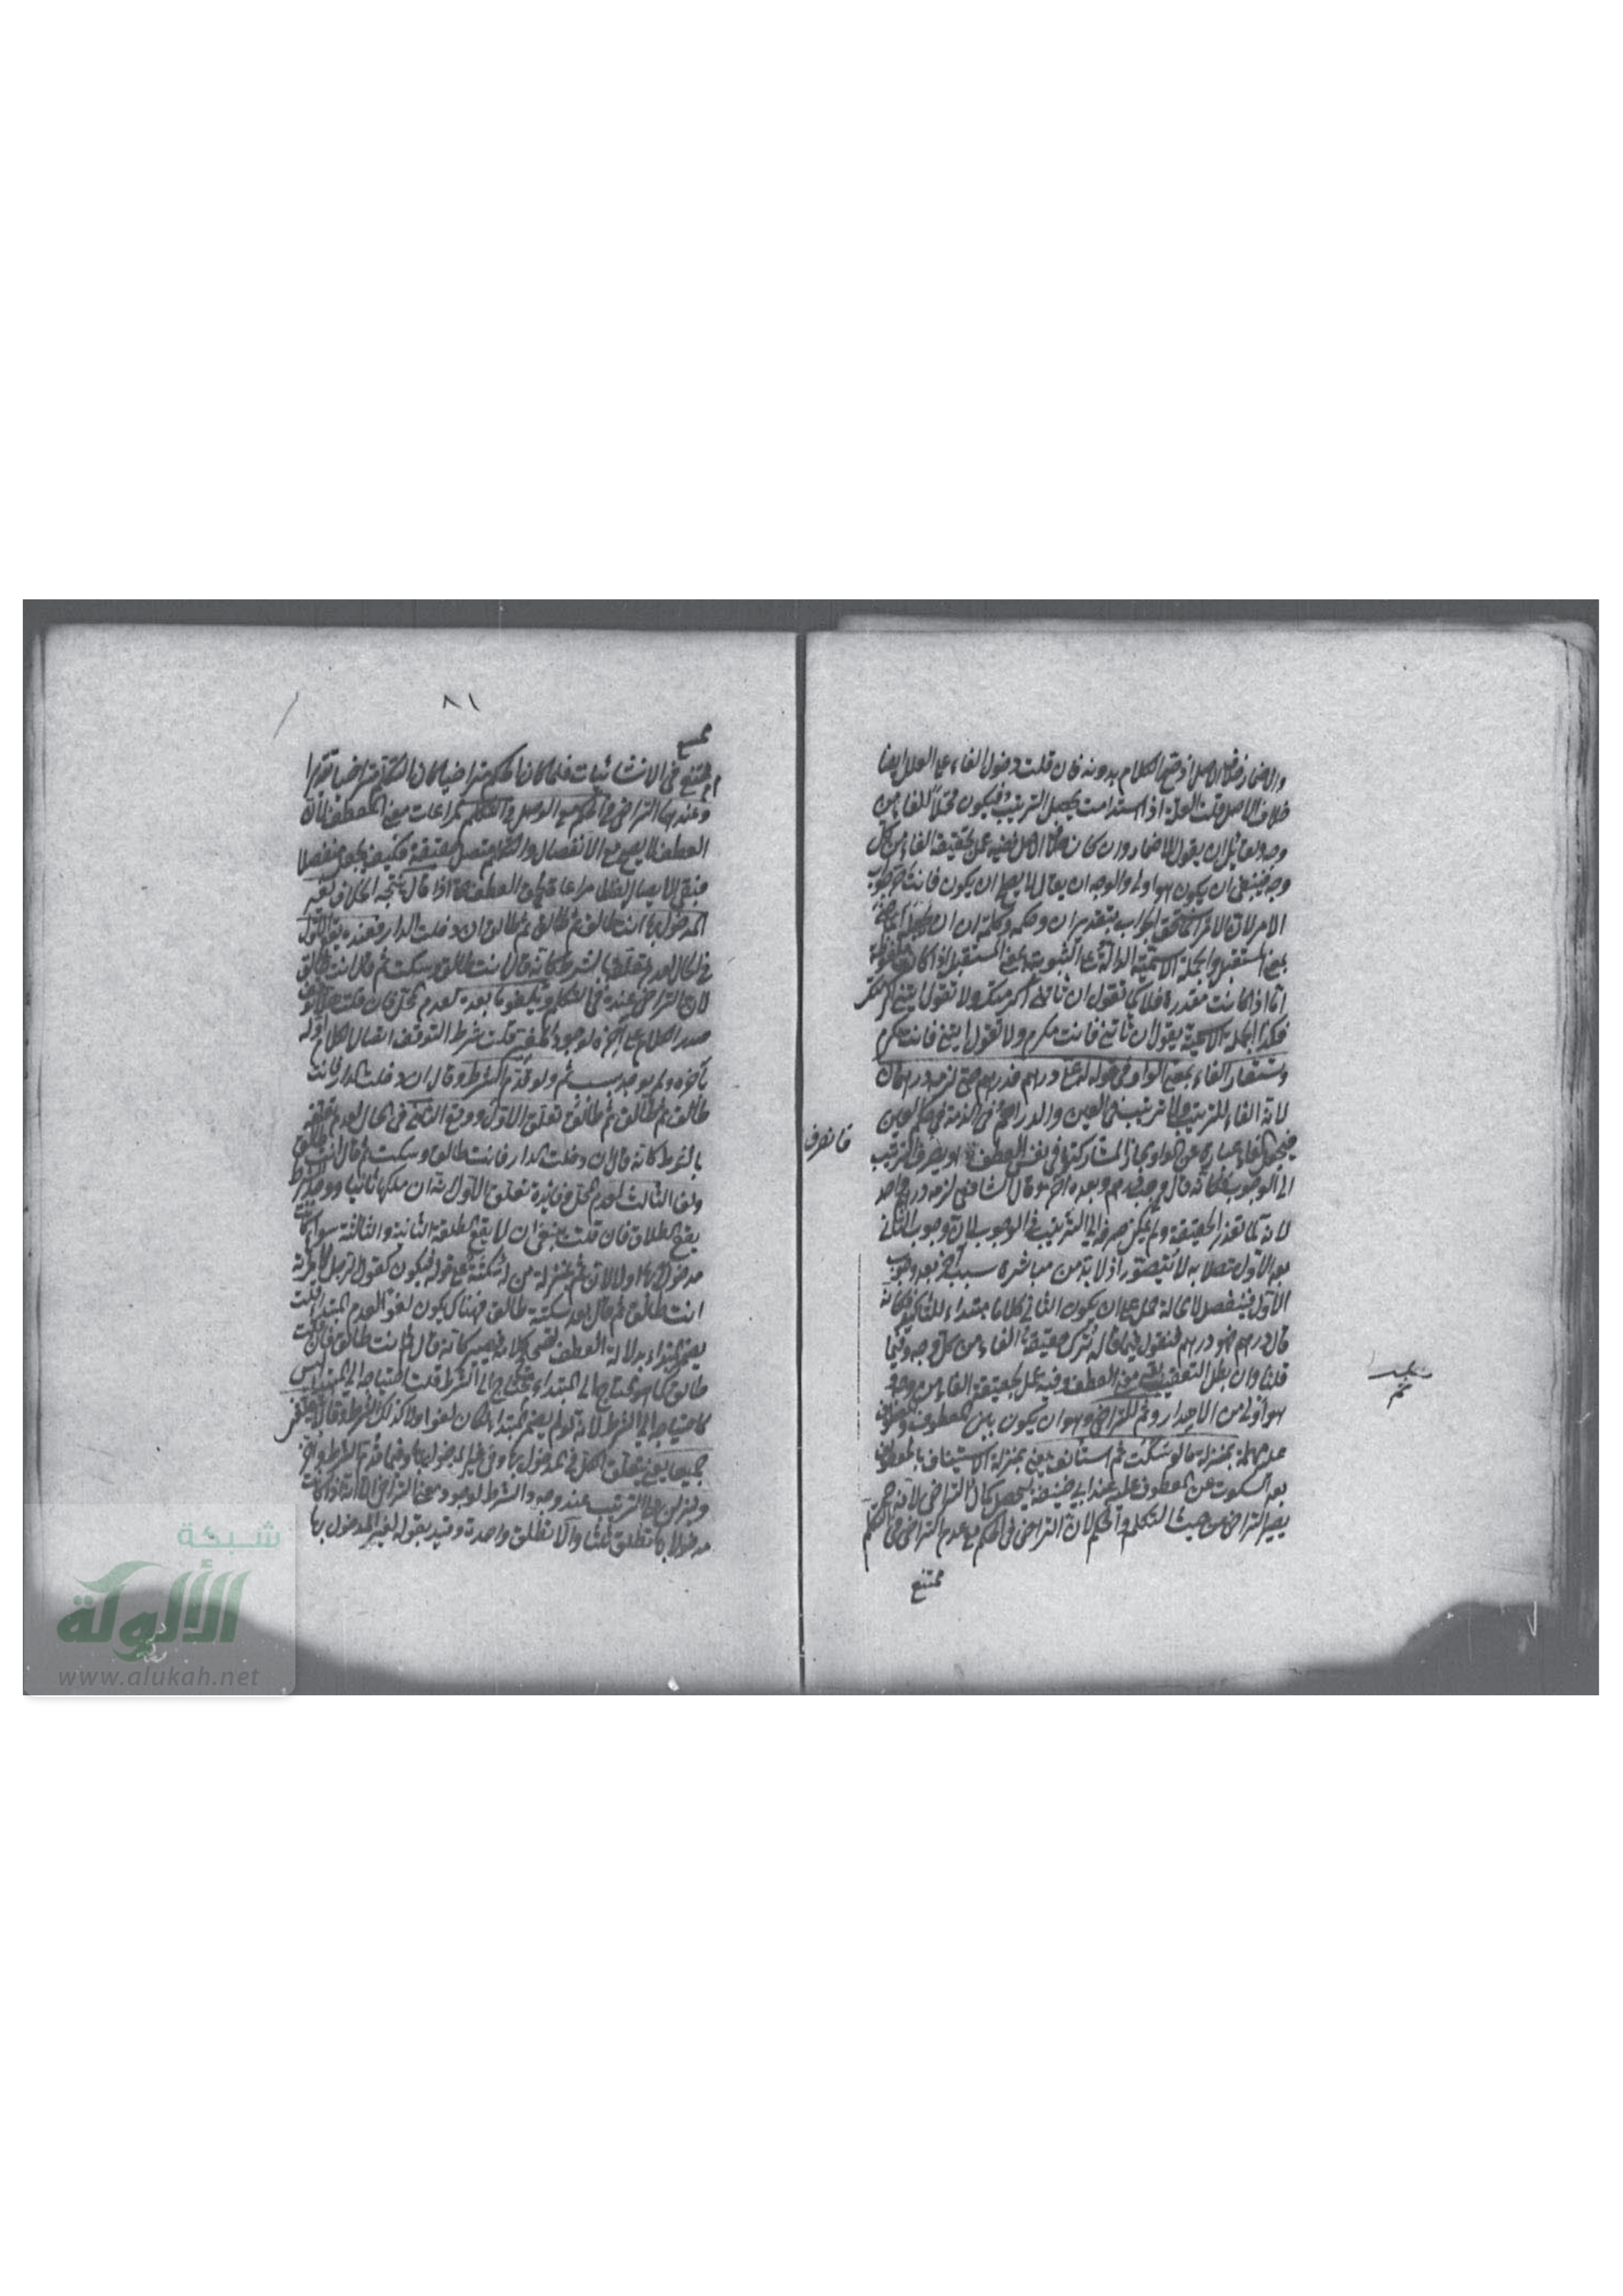 والاضمار خلاف الاصل اذ صح الكلام بدونه فان قلت دخول الفاء على العلل ايضا
خلاف الاصل قلت العلة اذا استدامت يحصل الترتيب فيكون عملاً للفاء من
وجه ولقائل ان يقول الاضمار وان كان خلاف الاصل ففيه عمل بحقيقة الفاء من كل
وجه فينبغي ان يكون هو اولى والوجه ان يقال لا يصح ان يكون فانت حر جواب
الامر لان الامر انما يستحق الجواب بتقدير ان وكلمة ان
بمعنى المستقبل والجملة الاسمية الدالة على الثبوت بمعنى المستقبل اذا كانت ملفوظة
اما اذا كانت مقدرة فلا كما تقول ان تأتني اكرمتك ولا تقول ايتني اكرمتك
فكذا الجملة الاسمية يقول ان تأتني فانت مكرم ولا تقول ايتني فانت مكرم
وتستعار الفاء بمعنى الواو في قوله له علي درهم فدرهم حتى لزمه درهمان
لان الفاء للترتيب ولا ترتيب في العين والدراهم في الذمة في حكم العين
فيجعل الفاء عبارة عن الواو مجازا لمشاركتهما في نفس العطف او يصرف الترتيب
الى الوجوب فكأنه قال وجب درهم وبعده آخر وقال الشافعي لزمه درهم واحد
لانه لما تعذر الحقيقة ولم يمكن صرفه الى الترتيب في الوجوب لان وجوب الثاني
بعد الاول متصلا به لا يتصور اذ لا بد من مباشرة سبب آخر بعد وجوب
الاول فينفصل لا محالة حمل على ان يكون الثاني كلاما مبتداء للتأكيد فكأنه
قال درهم فهو درهم فنقول فيما قاله ترك حقيقة الفاء من كل وجه وفيما
قلنا وان بطل التعقيب بقي معنى العطف وفيه عمل بحقيقة الفاء من وجه
هو اولى من الاهدار وثم للتراخي وهو ان يكون بين المعطوف والمعطوف
عليه مهلة بمنزلة ما لو سكت ثم استأنف يعني بمنزلة الاستيناف بالمعطوف
بعد السكوت عن المعطوف عليه عند ابي حنيفة ليحصل كمال التراخي لانه ح
يصير التراخي من حيث التكلم والحكم لان التراخي في الحكم مع عدم التراخي في التكلم
ممتنع
فانصرف
ثم
٨١
ممتنع في الانشائيات فلما كان الحكم متراخيا كان التكلم متراخيا تقديرا
وعندهما التراخي في الحكم مع الوصل في التكلم لمراعات معنى العطف لان
العطف لا يصح مع الانفصال والتكلم متصل حقيقة فكيف يجعل منفصلا
فبقي الاتصال لفظا مراعاة لمعنى العطف حتى اذا قال نتيجة الخلاف لغير
المدخول بها انت طالق ثم طالق ثم طالق ان دخلت الدار فعنده يقع الاول
في الحال لعدم تعلقه بالشرط كأنه قال انت طالق وسكت ثم قال انت طالق
لان التراخي عنده في التكلم ويلغو ما بعده لعدم المحل فان قلت
صدر الكلام على آخره لوجود المغير قلت شرط التوقف اتصال الكلام اوله
بآخره ولم يوجد بسبب ثم ولو قدم الشرط وقال ان دخلت الدار فانت
طالق ثم طالق ثم طالق تعلق الاول ووقع الثاني في الحال لعدم تعلقه
بالشرط كأنه قال ان دخلت الدار فانت طالق وسكت ثم قال انت طالق
ولغا الثالث لعدم المحل وفائدة تعلق الاول انه ان ملكها ثانيا ووجد الشرط
يقع الطلاق فان قلت ينبغي ان لا يقع الطلقة الثانية والثالثة سواء كانت
مدخولا بها او لا لان ثم بمنزلة من له سكتة مع قوله فيكون كقول الرجل لامرأته
انت طالق ثم قال بعد سكتة طالق فهناك يكون لغوا لعدم المبتداء قلت
يضمر المبتداء بدلالة العطف كأنه قال ثم انت طالق فان قلت
طالق كما هو محتاج الى المبتداء محتاج الى الشرط قلت احتياجه الى المبتداء ليس
كاحتياجه الى الشرط لانه لو لم يضمر المبتداء لكان لغوا ولا كذلك الشرط وقالا يتعلقن
جميعا يعني يتعلق الكل في المدخول بها وفي غير المدخول بها وفيما قدم الشرط او آخر
وينزلن على الترتيب عند وجود الشرط لوجود معنى التراخي الا انه اذا كانت
مدخولا بها تطلق ثلثا والا تطلق واحدة وقيد بقوله لغير المدخول بها
شبكة
الألوكة
www.alukah.net